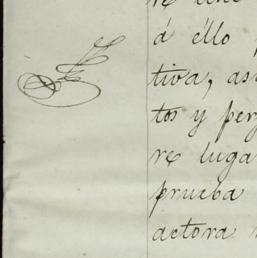 á éllo
tiva, as
tos y per
re luga
prueba
actora